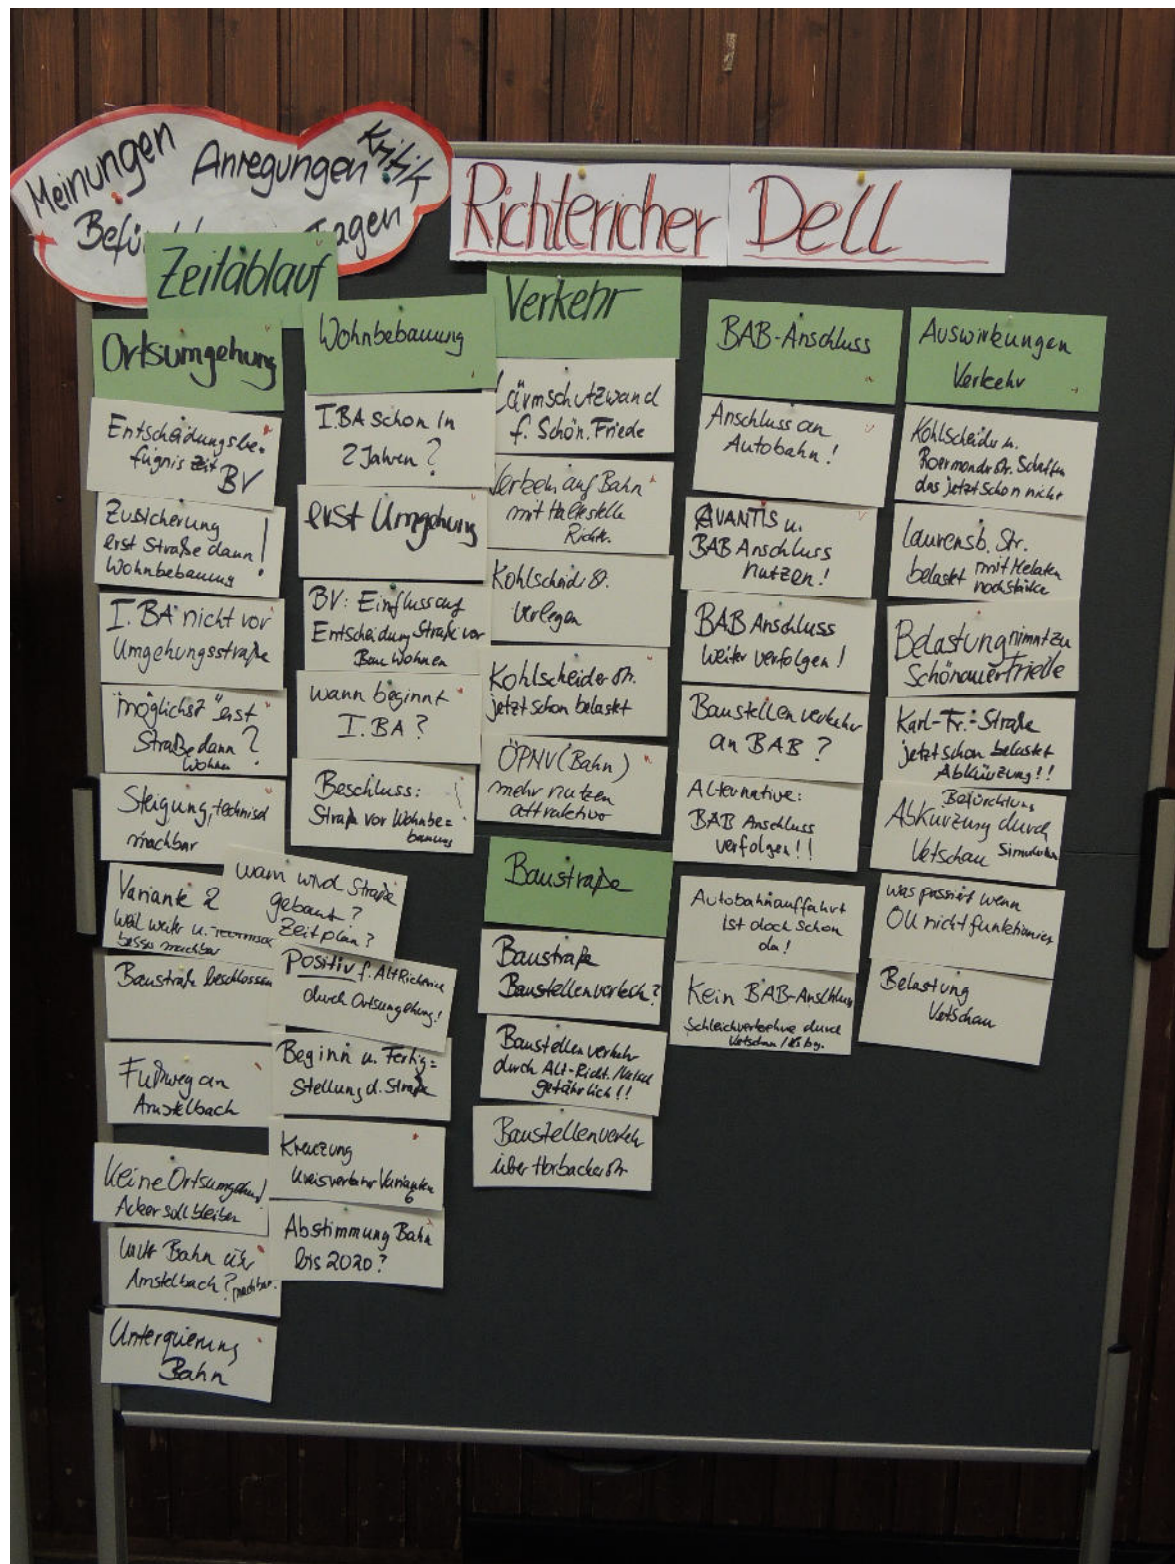 Meinungen Anregungen Kritik
Richtericher Dell
Zeitablauf
Ortsumgehung
Entscheidungsbe-
fugnis Zeit
BV
Zusicherung
erst Straße dann !
Wohnbebauung
I. BA nicht vor
Umgehungsstraße
"möglichst" erst
Straße dann ?
Wohnen
Steigung, technisch
machbar
Variante 2
weil weiter u.
besser machbar
Baustraße beschlossen
Fußweg an
Amstelbach
Keine Ortsumgehung!
Acker soll bleiben
unter Bahn
Amstelbach? machbar.
Unterquerung
Bahn
wann wird Straße
gebaut?
Zeitplan?
Positiv f. Alt Richterich
durch Ortsumgehung!
Beginn u. Fertig=
stellung d. Straße
Kreuzung
Kreisverkehr Varianten
Abstimmung Bahn
bis 2020?
Wohnbebauung
I. BA schon in
2 Jahren?
erst Umgehung
BV: Einfluss auf
Entscheidung Straße vor
Bau Wohnen
wann beginnt
I. BA?
Beschluss:
Straße vor Wohnbe=
bauung
Verkehr
Lärmschutzwand
f. Schön. Friede
Verkehr auf Bahn
mit Haltestelle
Richt.
Kohlscheider Str.
verlegen
Kohlscheider Str.
jetzt schon belastet
ÖPNV (Bahn)
mehr nutzen
attraktive
Baustraße
Baustraße
Baustellenverkehr?
Baustellenverkehr
durch Alt-Richt. /
gefährlich!!
Baustellenverkehr
über Horbacher Str.
BAB-Anschluss
Anschluss an
Autobahn!
AVANTIS u.
BAB Anschluss
nutzen!
BAB Anschluss
weiter verfolgen!
Baustellenverkehr
an BAB ?
Alternative:
BAB Anschluss
verfolgen!!
Autobahnauffahrt
ist doch schon
da!
Kein BAB-Anschluss
Schleichverkehre durch
Vetschau /
Auswirkungen
Verkehr
Kohlscheider u.
Roermonder Str. schaffen
das jetzt schon nicht
Laurensb. Str.
belastet mit Melaten
noch stärker
Belastung nimmt zu
Schönauer Friede
Karl-Fr.-Straße
jetzt schon belastet
Abkürzung!!
Befürchtung
Abkürzung durch
Vetschau Simulation
was passiert wenn
OU nicht funktioniert
Belastung
Vetschau